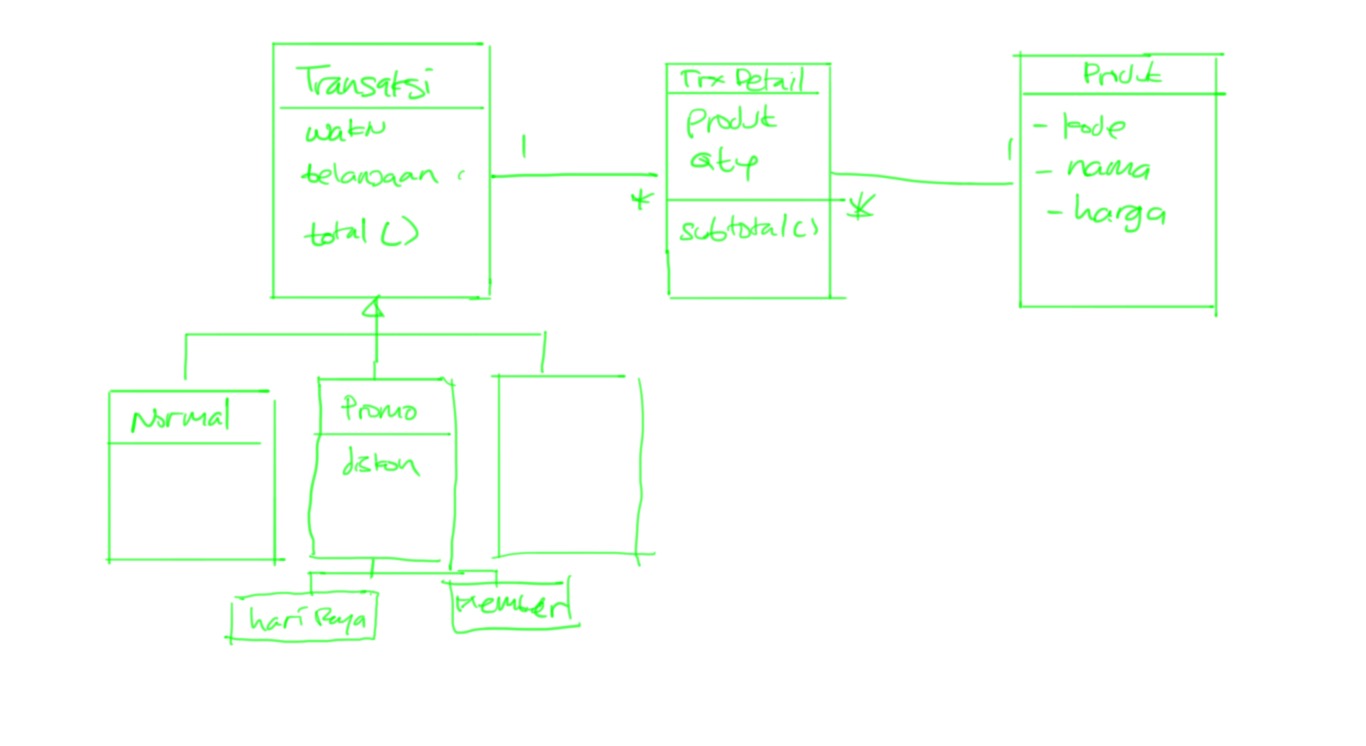 Transaksi
waktu
belanjaan
total ()
1
*
Trx Detail
Produk
Qty
subtotal()
*
1
Produk
- kode
- nama
- harga
Normal
Promo
diskon
hari Raya
Member